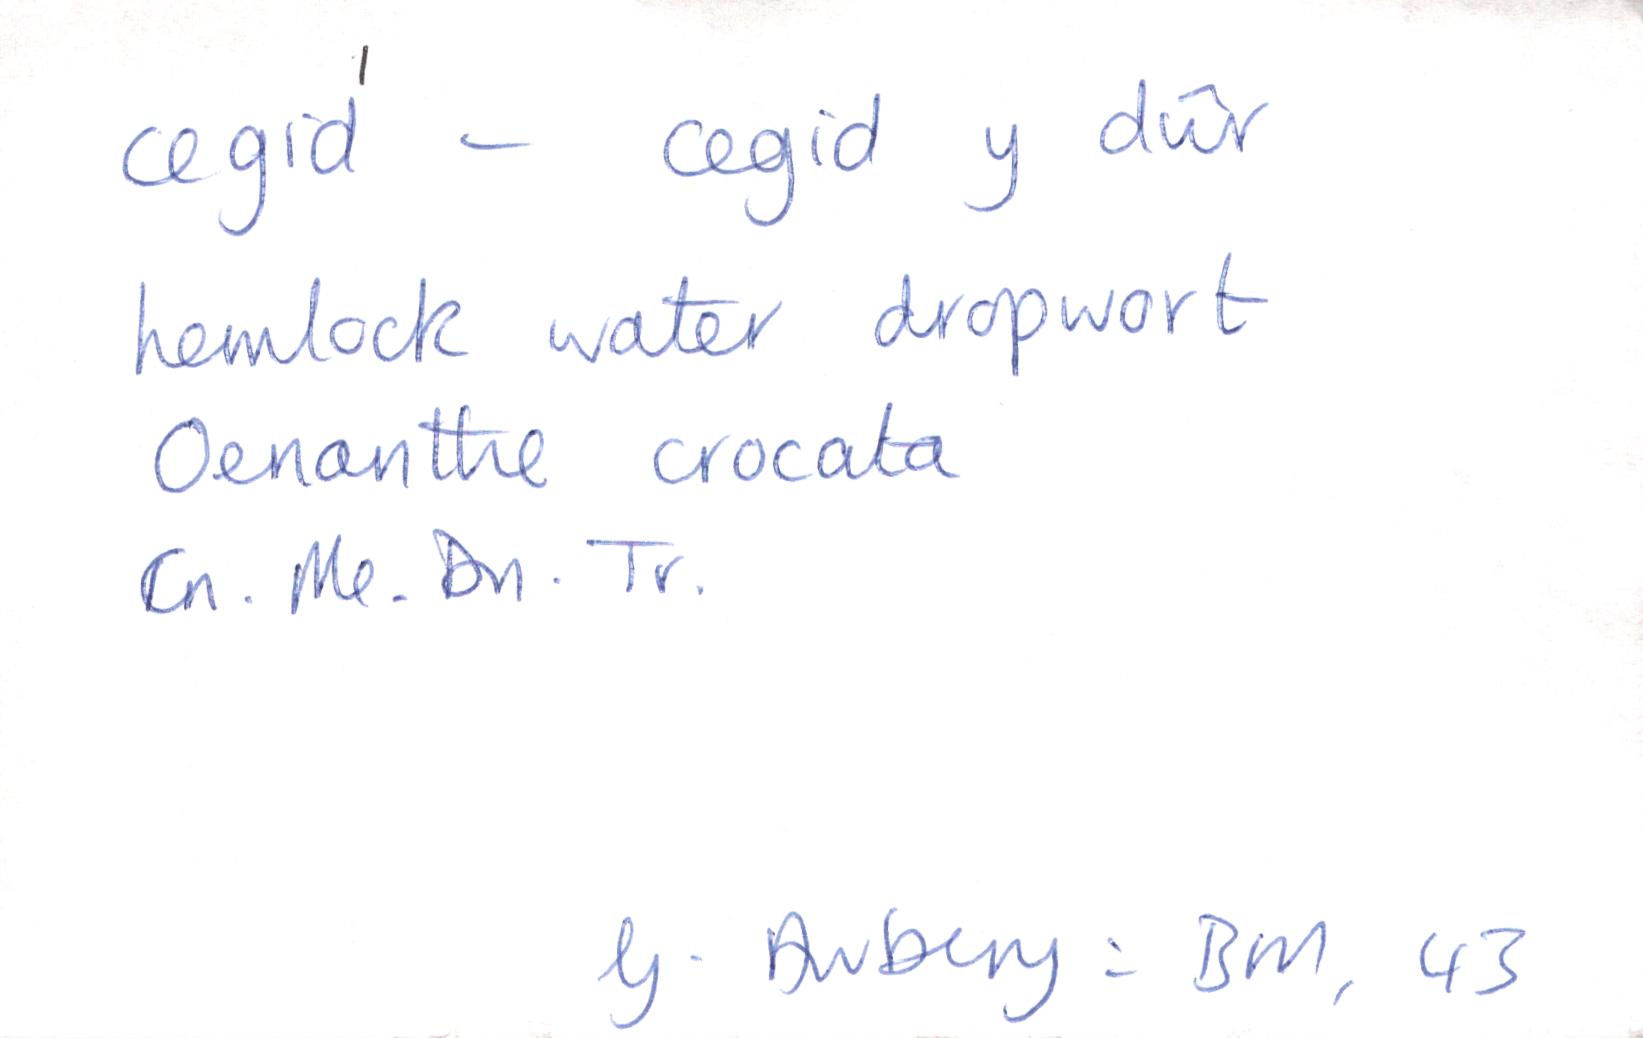 cegid - cegid y dŵr
hemlock water dropwort
Oenanthe crocata
Cn. Me. Dn. Tr.
G. Awbery : BM, 43